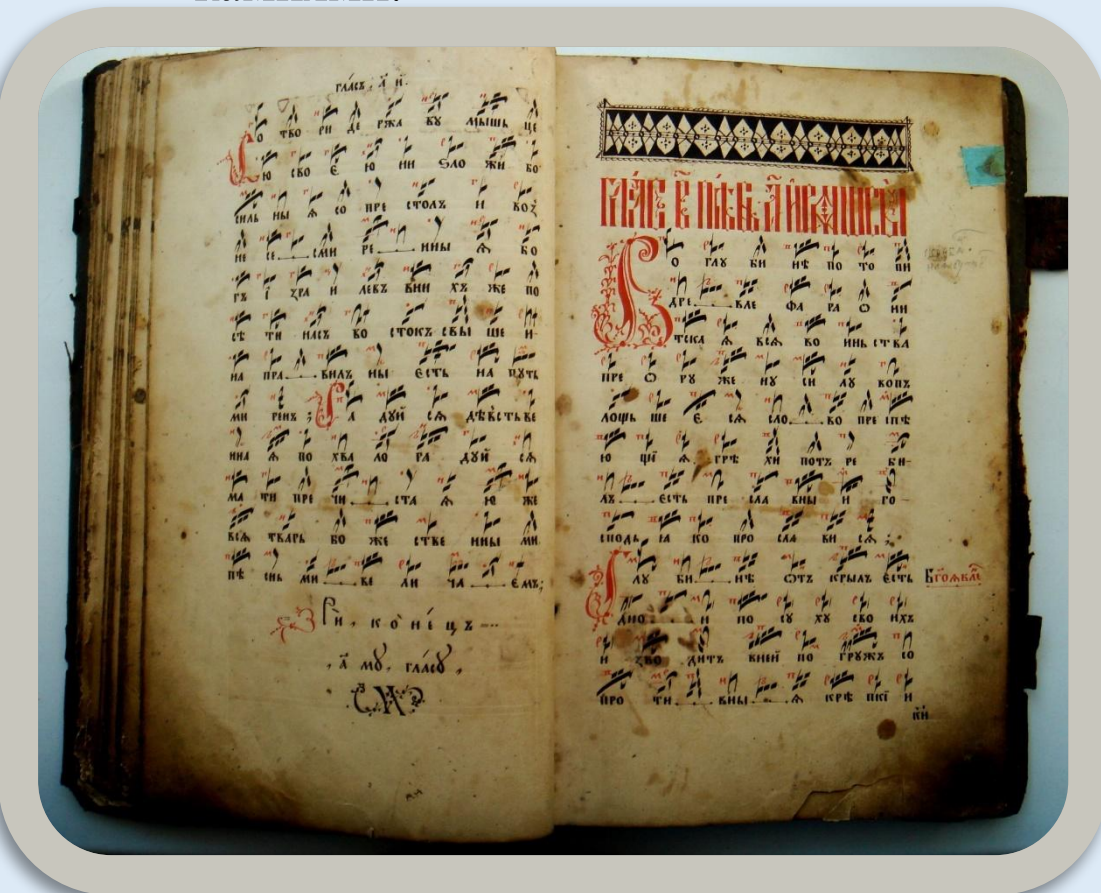 гласъ, а҃ й.
Со тво ри де ржа ву мышь це
ю сво є ю ни ѕло жи бо
силь ны ѧ со пре столъ и воз
не се сми ре нны ѧ бо
гъ ї зра и левъ вни хъ же по
сѣ ти насъ во стокъ свы ше и
на пра вилъ ны єсть на путь
ми ренъ ; Ра дуй сѧ дѣвстьве
нна ѧ по хва ло ра дуй сѧ
ма ти пре чи ста ѧ ю же
всѧ тварь бо же стве нны ми
пѣ снь ми ве ли ча ємъ;
конецъ
а҃ му, гласу,
Гласъ в҃ пѣснь а҃
Во глу би нѣ по то пи
дре вле фа ра ѡ ни
тска ѧ всѧ во инь ства
пре ѡ ру же ну си лу вопъ
лощь ше є сѧ сло во пре спѣ
ю щї ѧ грѣ хи потъ ре би
лъ єсть пре сла вны и го
сподь ꙗ ко про сла ви сѧ ;
Глу би нѣ ѿтъ крылъ єсть
дно и по су ху сво ихъ
и зво дитъ вней по гружъ со
про ти вны ѧ крѣ пкї и